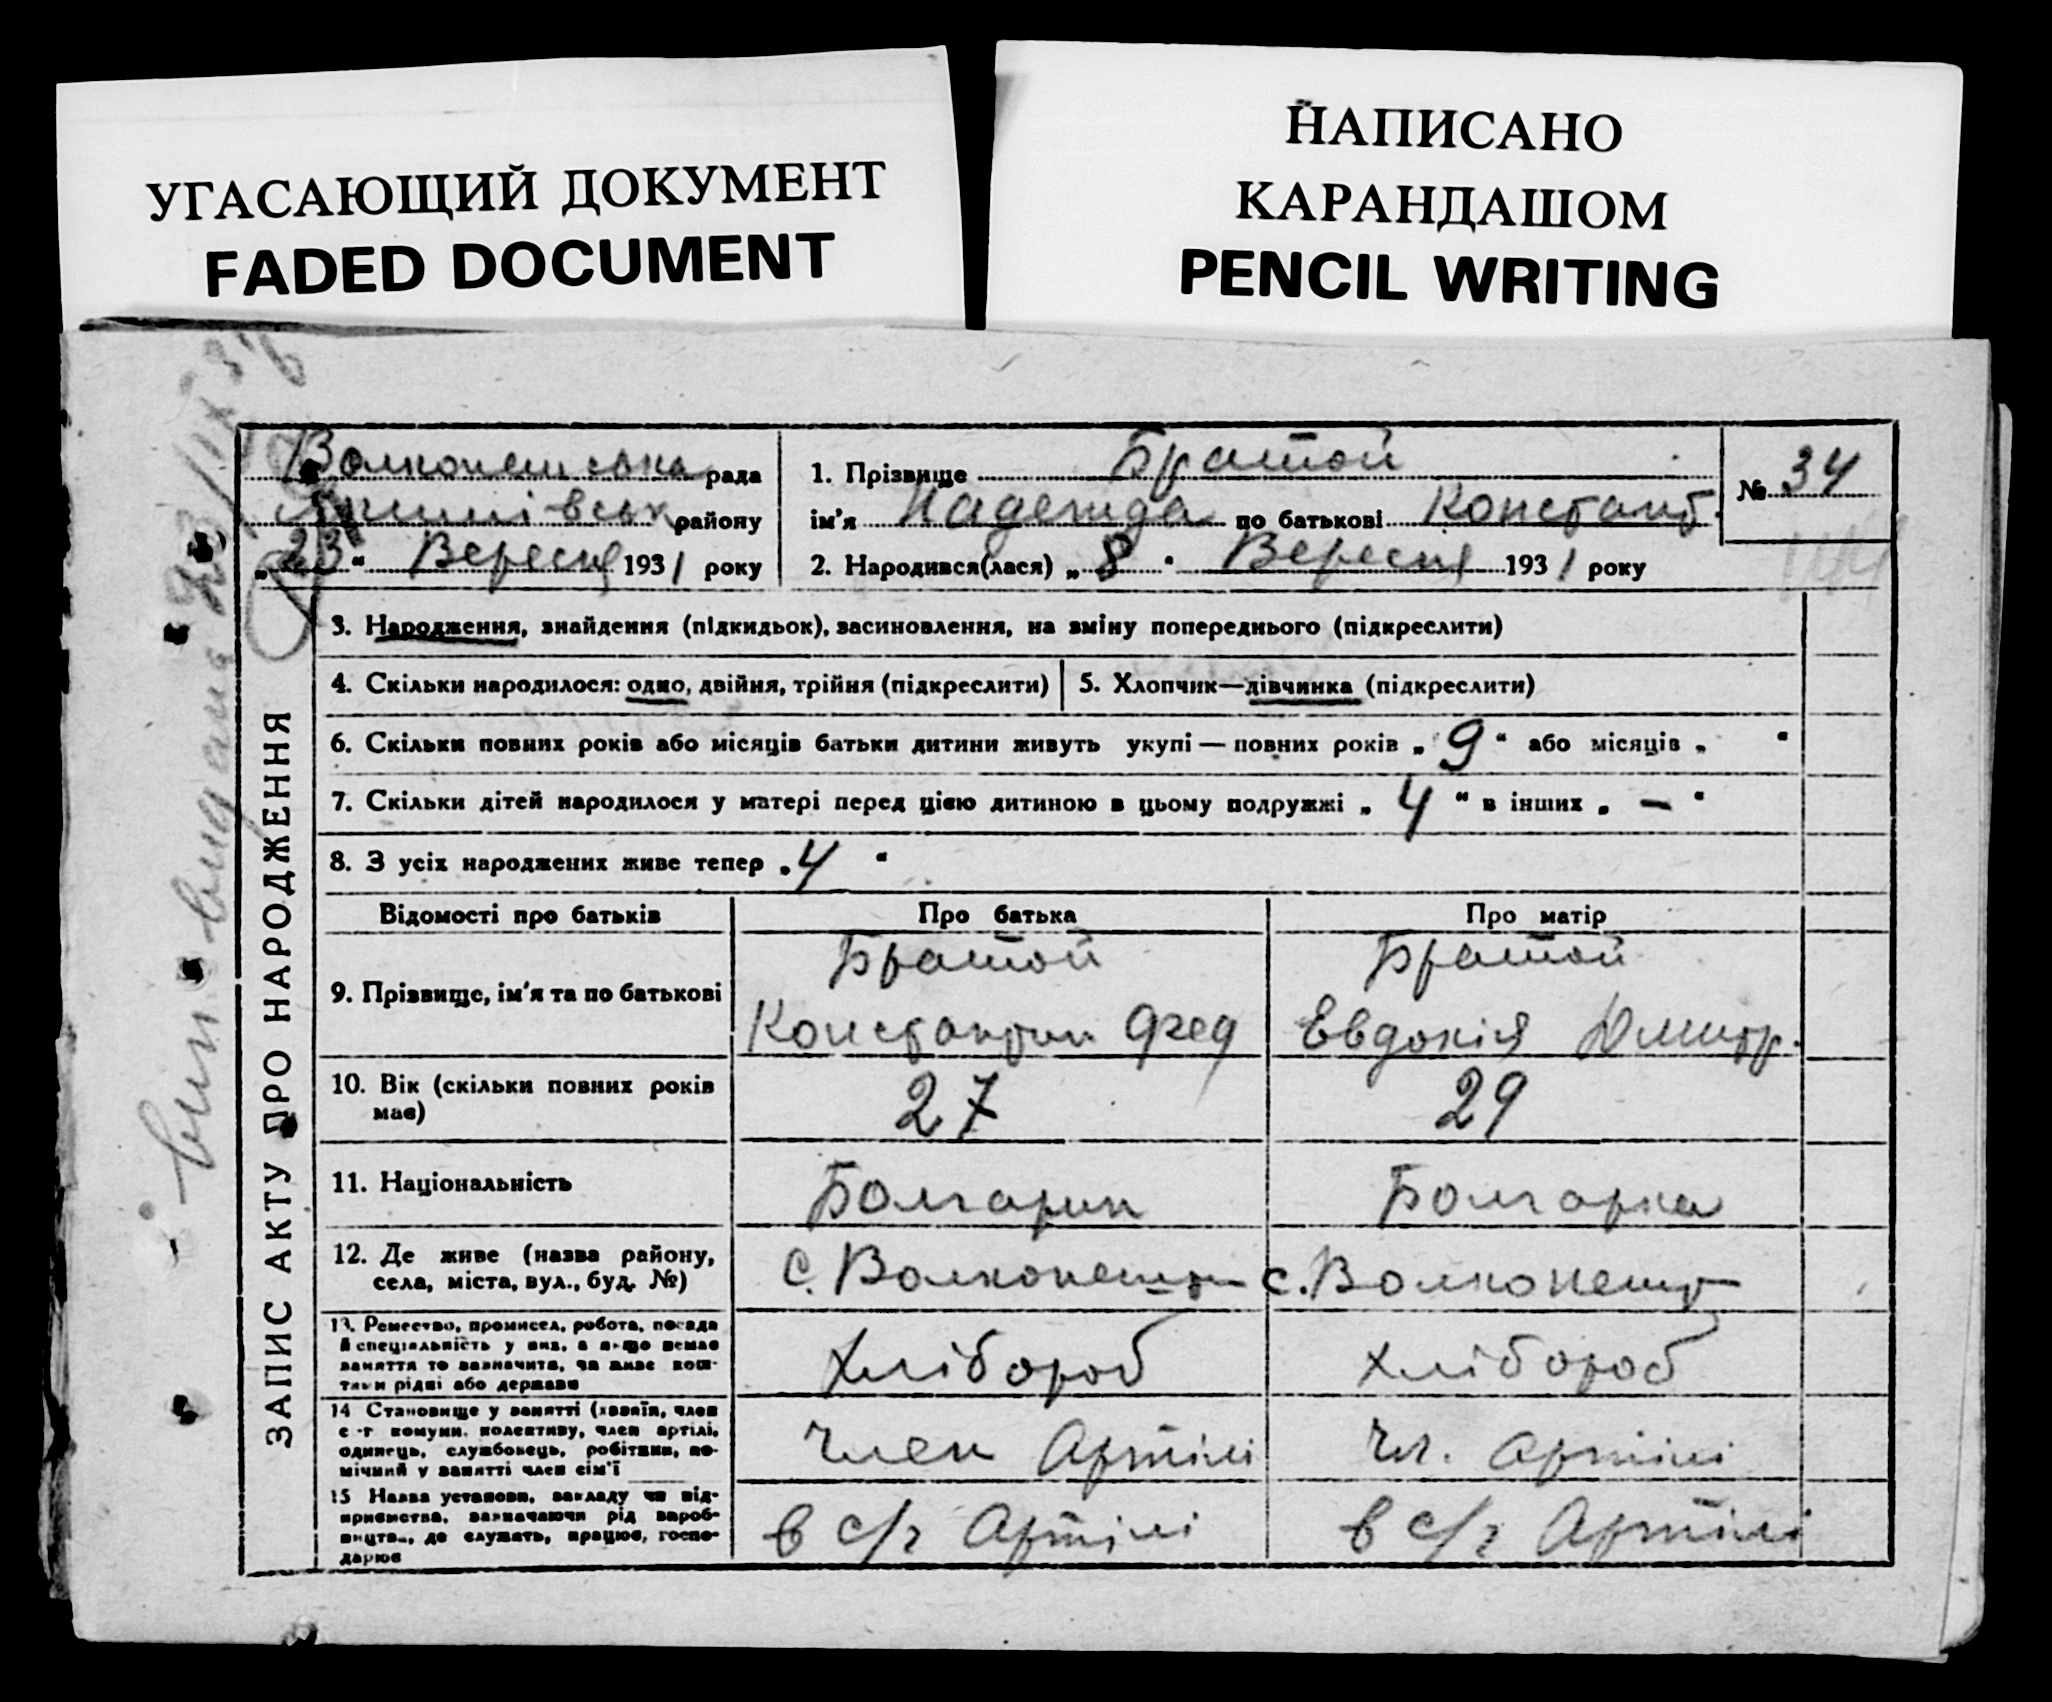 УГАСАЮЩИЙ ДОКУМЕНТ
FADED DOCUMENT
НАПИСАНО
КАРАНДАШОМ
PENCIL WRITING
Волконешська рада
району
„23“ Вересня 1931 року
1. Прізвище Братой
ім’я Надежда по батькові Констант.
2. Народився(лася) „8“ Вересня 1931 року
№ 34
ЗАПИС АКТУ ПРО НАРОДЖЕННЯ
3. Народження, знайдення (підкидьок), засиновлення, на зміну попереднього (підкреслити)
4. Скільки народилося: одно, двійня, трійня (підкреслити)
5. Хлопчик—дівчинка (підкреслити)
6. Скільки повних років або місяців батьки дитини живуть укупі — повних років „9“ або місяців „ “
7. Скільки дітей народилося у матері перед цією дитиною в цьому подружжі „4“ в інших „—“
8. З усіх народжених живе тепер „4“
Відомості про батьків
Про батька
Про матір
9. Прізвище, ім’я та по батькові
Братой
Константин Фед
Братой
Евдокія Дмитр.
10. Вік (скільки повних років
має)
27
29
11. Національність
Болгарин
Болгарка
12. Де живе (назва району,
села, міста, вул., буд. №)
с. Волконешт
с. Волконешт
13. Ремество, промисел, робота, посада
й спеціяльність у них, а якщо немає
заняття то зазначити, чи живе кош-
тами рідні або держави
Хлібороб
Хлібороб
14 Становище у занятті (хазяїн, член
с-г комуни, колективу, член артілі,
одинець, службовець, робітник, по-
мічний у занятті член сім’ї
Член Артілі
Чл. Артілі
15 Назва установи, закладу чи під-
приємства, зазначаючи рід вироб-
ництва, де служать, працює, госпо-
дарює
в с/г Артілі
в с/г Артілі